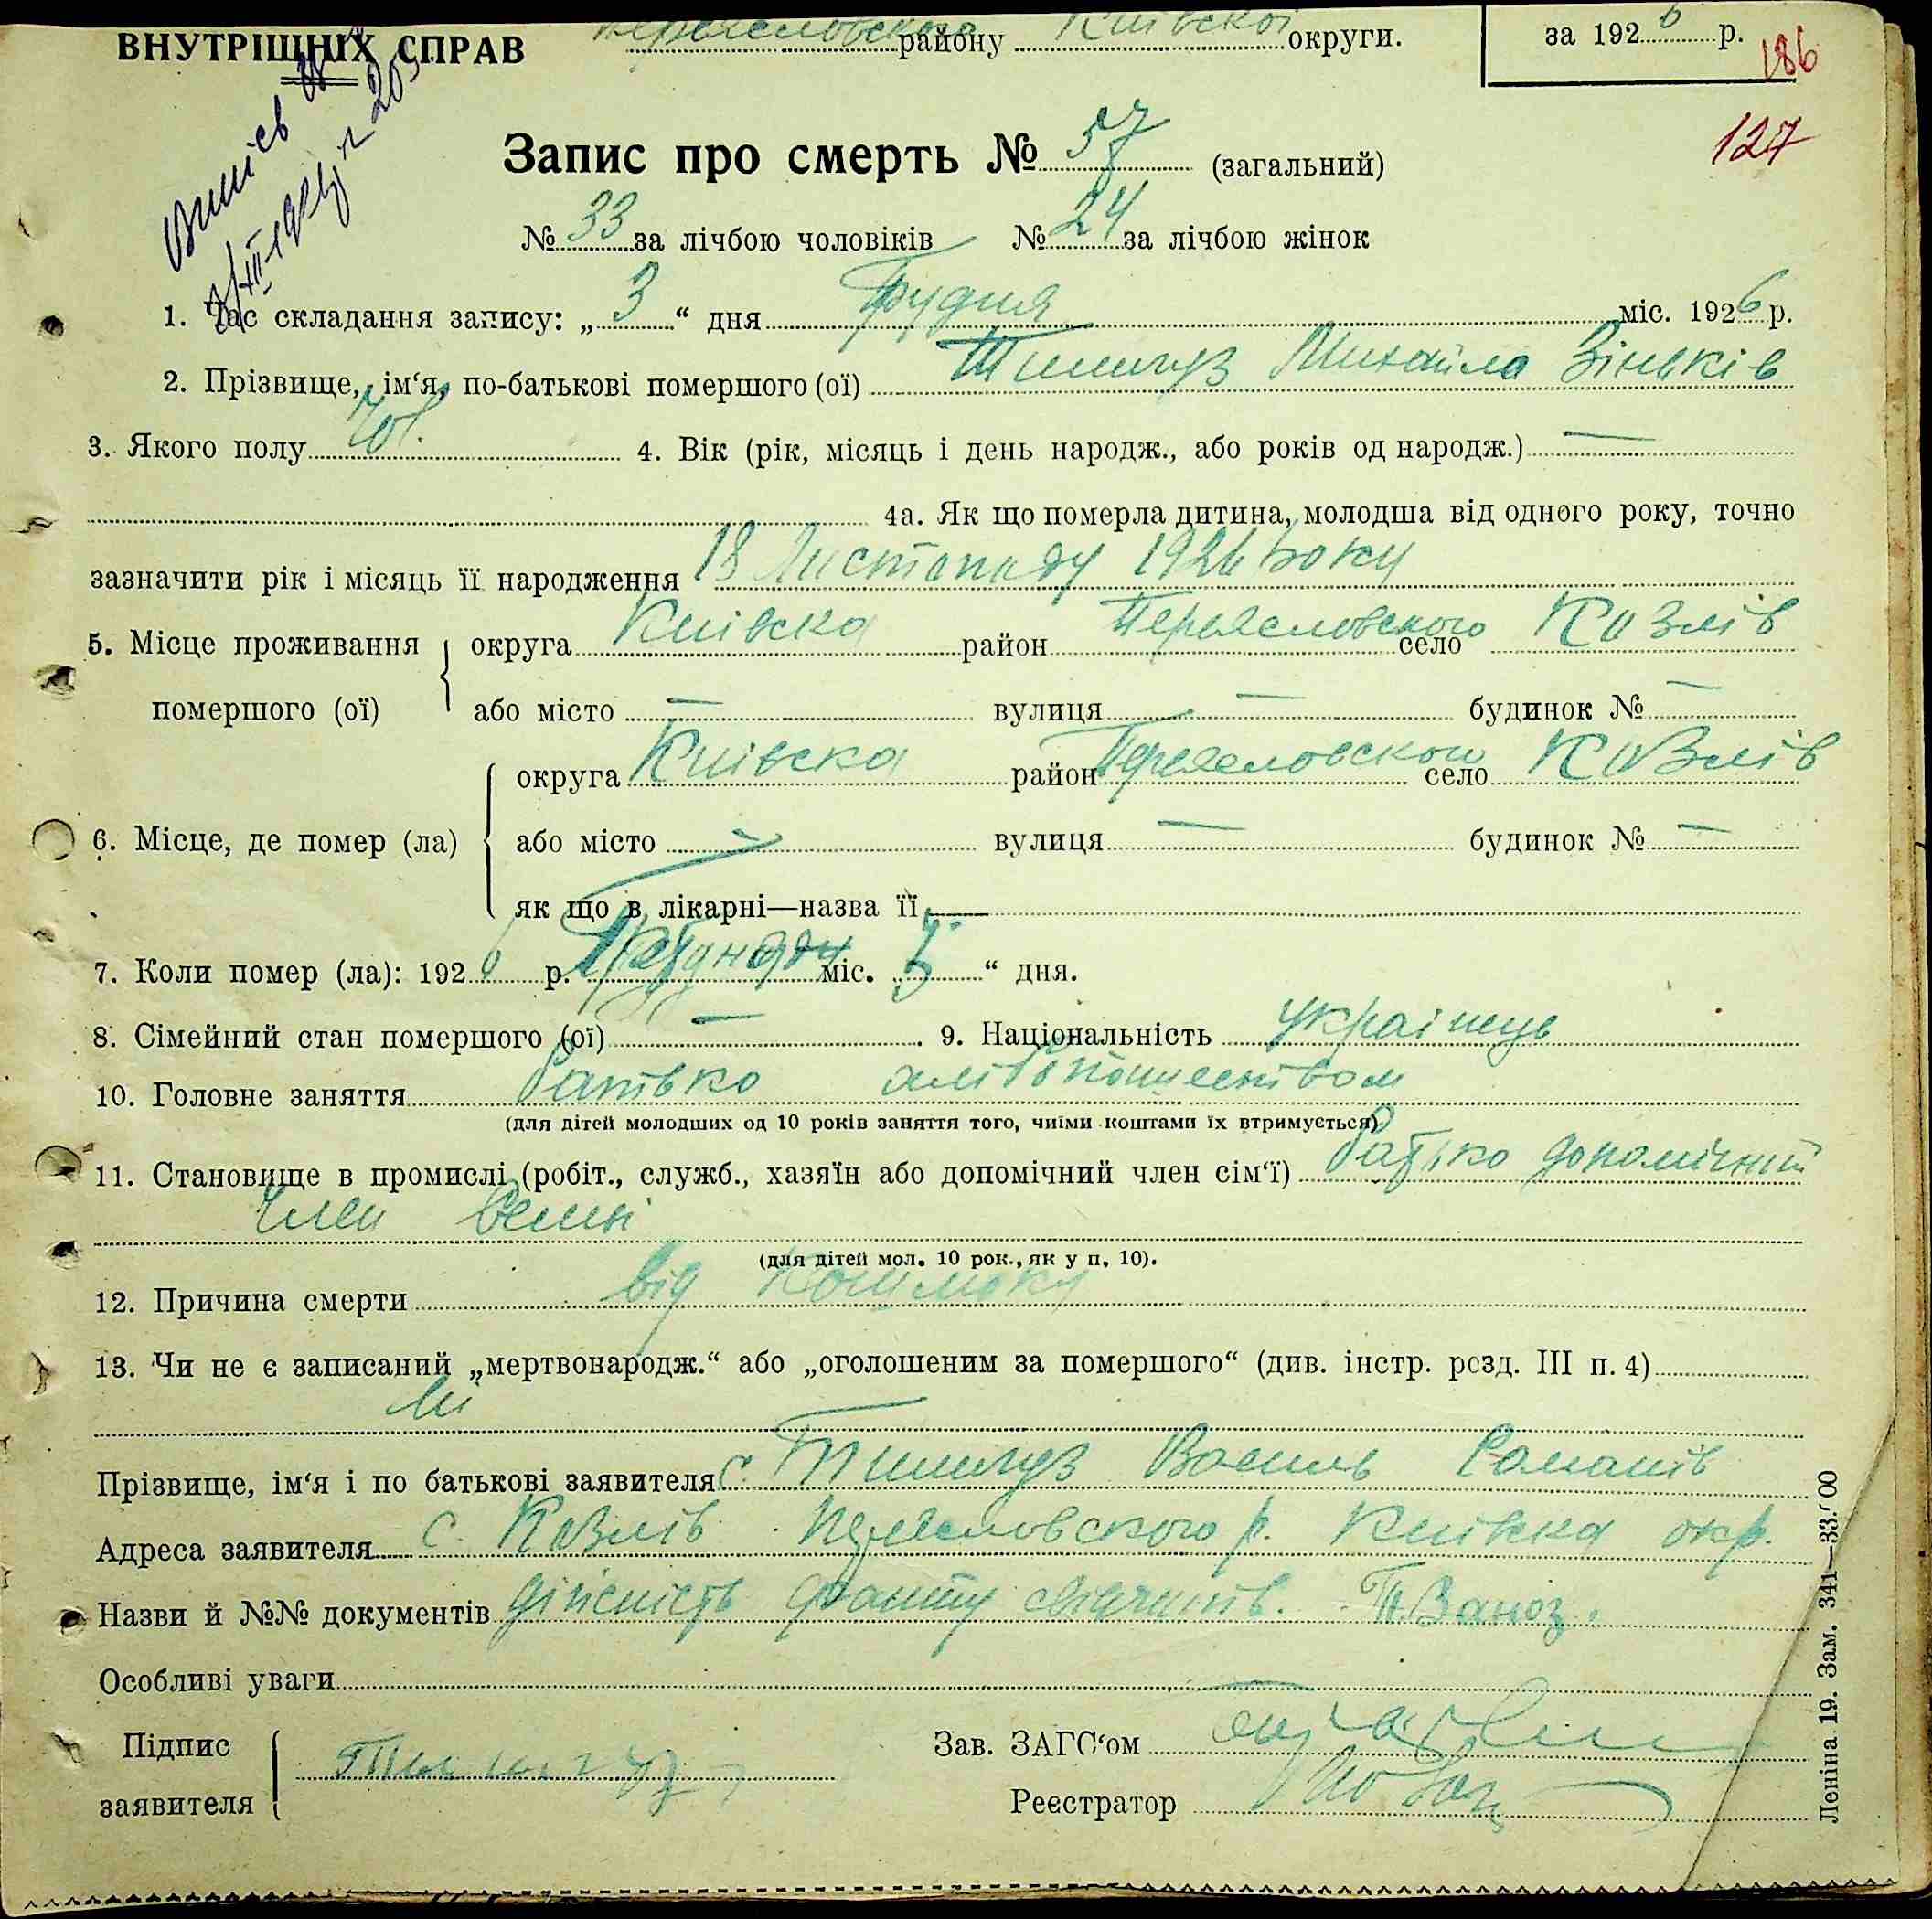 ВНУТРІШНІХ СПРАВ Переясловского району Київскої округи. за 1926 р. 186
127
Запис про смерть № 57 (загальний)
№ 33 за лічбою чоловіків № 24 за лічбою жінок
1. Час складання запису: „ 3 “ дня Грудня міс. 1926 р.
2. Прізвище, ім‘я, по-батькові помершого (ої) Михайло Зіньків
3. Якого полу Чол. 4. Вік (рік, місяць і день народж., або років од народж.) —
4а. Як що померла дитина, молодша від одного року, точно
зазначити рік і місяць її народження 18 Листопаду 1926 року
5. Місце проживання округа Київска район Переясловского село Козлів
помершого (ої) або місто — вулиця — будинок № —
округа Київска район Переясловского село Козлів
6. Місце, де помер (ла) або місто — вулиця — будинок № —
як що в лікарні—назва її —
7. Коли помер (ла): 1926 р. міс. „ “ дня.
8. Сімейний стан помершого (ої) — 9. Національність українець
10. Головне заняття батько
(для дітей молодших од 10 років заняття того, чиїми коштами їх втримується)
11. Становище в промислі (робіт., служб., хазяїн або допомічний член сім‘ї) батько допомічний
член семьі
(для дітей мол. 10 рок., як у п. 10).
12. Причина смерти від
13. Чи не є записаний „мертвонародж.“ або „оголошеним за помершого“ (див. інстр. розд. III п. 4)
Ні
Прізвище, ім‘я і по батькові заявителя Василь Романів
Адреса заявителя с. Козлів Переясловского р. Київска окр.
Назви й №№ документів дійсність факту
Особливі уваги
Підпис заявителя
Зав. ЗАГС‘ом
Реєстратор
Леніна 19. Зам. 341—33.